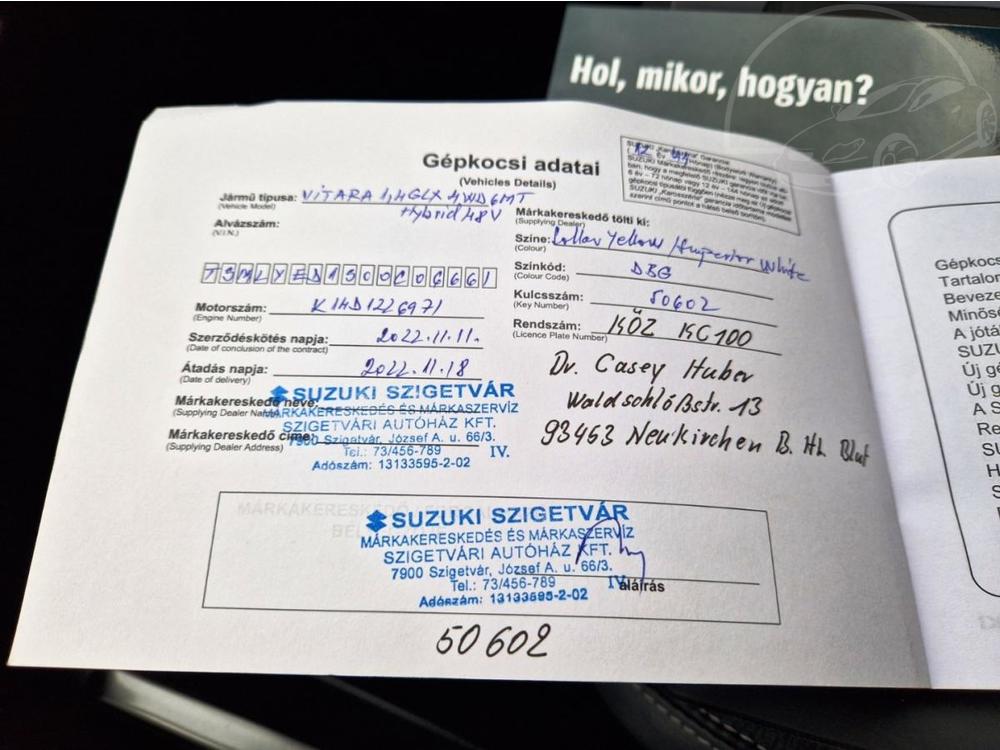 Hol, mikor, hogyan?
Gépkocsi adatai
(Vehicles Details)
SUZUKI „Karosszéria" Garancia
(Bodywork Warranty)
Jármű típusa: VITARA 1,4 GLX 4WD 6MT
(Vehicle Model)
Hybrid 48V
Alvázszám:
(V.I.N.)
TSMLYED1S00C06661
Motorszám: K14D1226971
(Engine Number)
Szerződéskötés napja: 2022.11.11.
(Date of conclusion of the contract)
Átadás napja: 2022.11.18
(Date of delivery)
Márkakereskedő neve:
(Supplying Dealer Name)
Márkakereskedő címe:
(Supplying Dealer Address)
SUZUKI SZIGETVÁR
MÁRKAKERESKEDÉS ÉS MÁRKASZERVÍZ
SZIGETVÁRI AUTÓHÁZ KFT.
7900 Szigetvár, József A. u. 66/3.
Tel.: 73/456-789 IV.
Adószám: 13133595-2-02
Márkakereskedő tölti ki:
(Supplying Dealer)
Színe: Yellow / Superior White
(Colour)
Színkód: DBG
(Colour Code)
Kulcsszám: 50602
(Key Number)
Rendszám: KÖZ KC100
(Licence Plate Number)
Dr. Casey Huber
Waldschlößstr. 13
93463 Neukirchen B. Hl. Blut
SUZUKI SZIGETVÁR
MÁRKAKERESKEDÉS ÉS MÁRKASZERVÍZ
SZIGETVÁRI AUTÓHÁZ KFT.
7900 Szigetvár, József A. u. 66/3.
Tel.: 73/456-789 IV.
aláírás
Adószám: 13133595-2-02
50602
Gépkocs
Tartalon
Beveze
Minősé
A jótá
SUZU
Új gé
Új g
A S
Re
SU
H
S